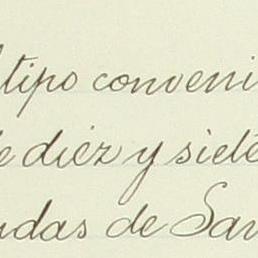 tipo conveni
de diez y siete
ndas de San